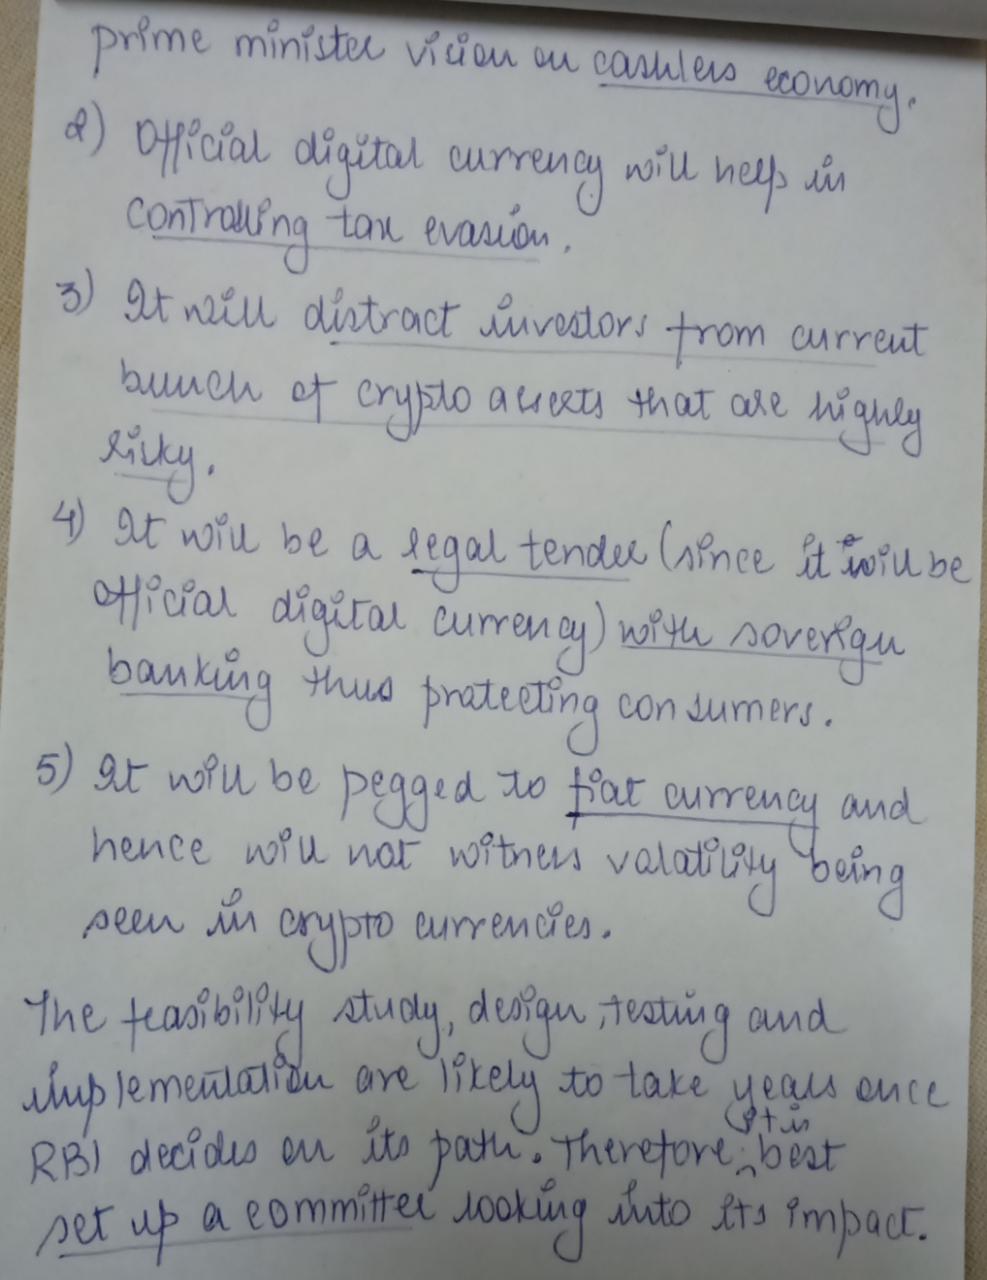 prime minister vision on cashless economy.
2) Official digital currency will help in
controlling tax evasion.
3) It will distract investors from current
bunch of crypto assets that are highly
risky.
4) It will be a legal tender (since it will be
official digital currency) with soverign
banking thus protecting consumers.
5) It will be pegged to fiat currency and
hence will not witness valatility being
seen in crypto currencies.
The feasibility study, design, testing and
implementation are likely to take years once
RBI decides on its path. Therefore, it is best
set up a committee looking into its impact.